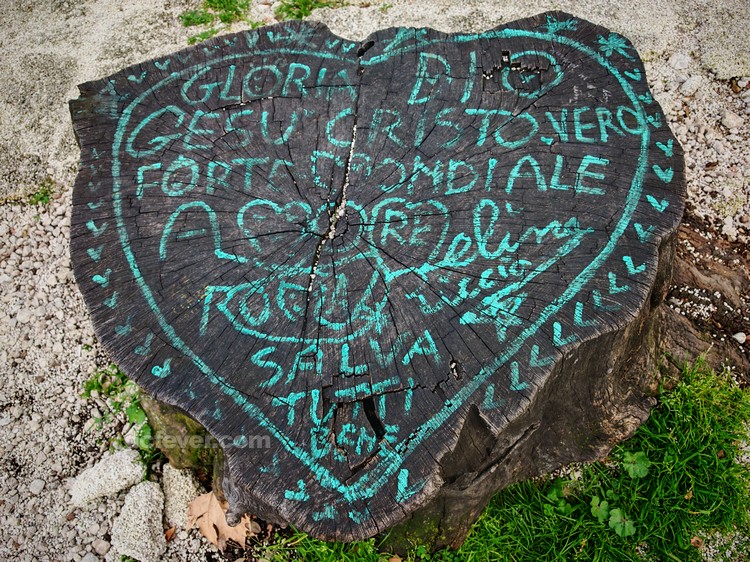 GLORIA DIO
GESU' CRISTO VERO
FORTE MONDIALE
AMORE
SALVA
TUTTI
BENE